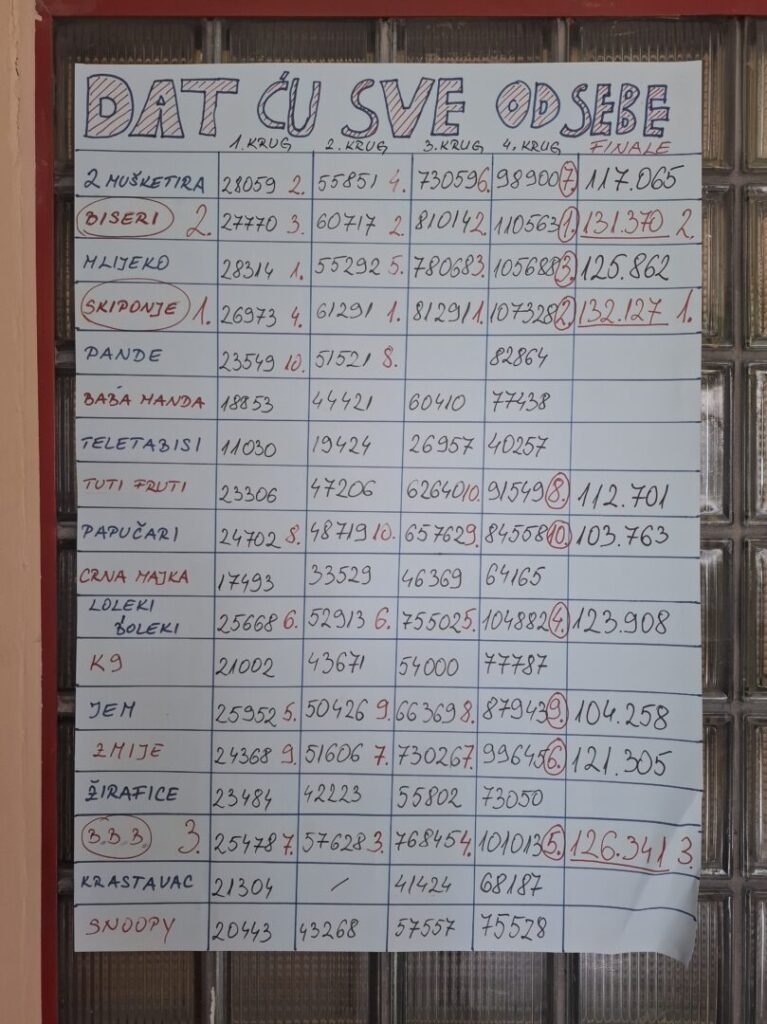 DAT ĆU SVE OD SEBE
1. KRUG 2. KRUG 3. KRUG 4. KRUG FINALE
2 MUŠKETIRA 28059 2. 55851 4. 73059 6. 98900 7. 117.065
BISERI 2. 27770 3. 60717 2. 81014 2. 110563 1. 131.370 2.
MLIJEKO 28314 1. 55292 5. 78068 3. 105688 3. 125.862
SKIPONJE 1. 26973 4. 61291 1. 81291 1. 107328 2. 132.127 1.
PANDE 23549 10. 51521 8. 82864
BABA MANDA 18853 44421 60410 77438
TELETABISI 11030 19424 26957 40257
TUTI FRUTI 23306 47206 62640 10. 91549 8. 112.701
PAPUČARI 24702 8. 48719 10. 65762 9. 84558 10. 103.763
CRNA MAJKA 17493 33529 46369 64165
LOLEKI
BOLEKI 25668 6. 52913 6. 75502 5. 104882 4. 123.908
K9 21002 43671 54000 77787
JEM 25952 5. 50426 9. 66369 8. 87943 9. 104.258
ZMIJE 24368 9. 51606 7. 73026 7. 99645 6. 121.305
ŽIRAFICE 23484 42223 55802 73050
B.B.B. 3. 25478 7. 57628 3. 76845 4. 101013 5. 126.341 3.
KRASTAVAC 21304 / 41424 68187
SNOOPY 20443 43268 57557 75528